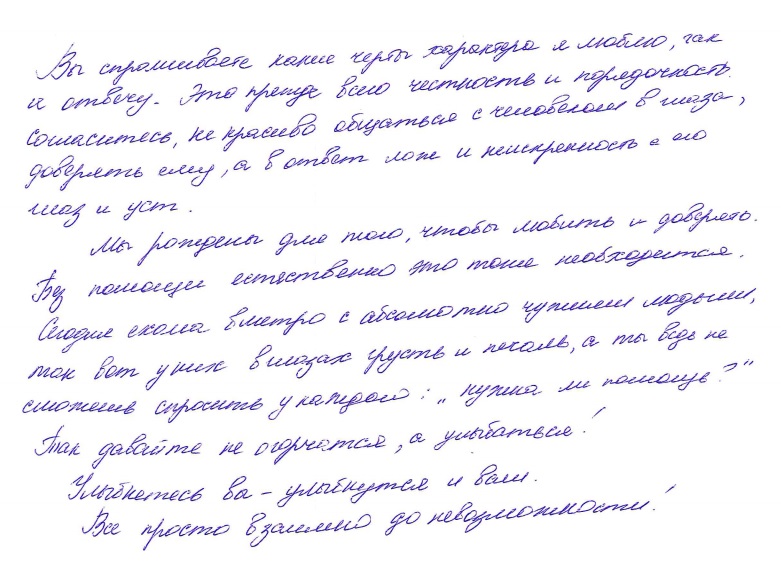 Вы спрашиваете какие черты характера я люблю, так
и отвечу. Это прежде всего честность и порядочность.
Согласитесь, не красиво общаться с человеком в глаза,
доверять ему, а в ответ лож и неискренность с его
глаз и уст.
Мы рождены для того, чтобы любить и доверять.
Без помощи естественно это тоже необходится.
Сегодня ехала в метро с абсолютно чужими людьми,
так вот у них в глазах грусть и печаль, а ты ведь не
сможешь спросить у каждого: „нужна ли помощь?"
Так давайте не огорчатся, а улыбаться!
Улыбнетесь вы - улыбнутся и вам.
Все просто взаимно до невозможности!